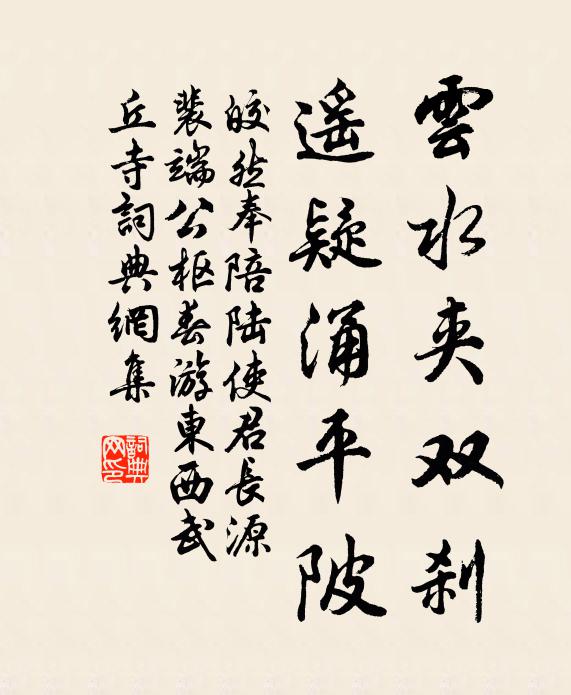 雲水夹双刹
遥疑涌平陂
皎然奉陪陆使君長源
裴端公枢春游東西武
丘寺詞典網集
詞典网印